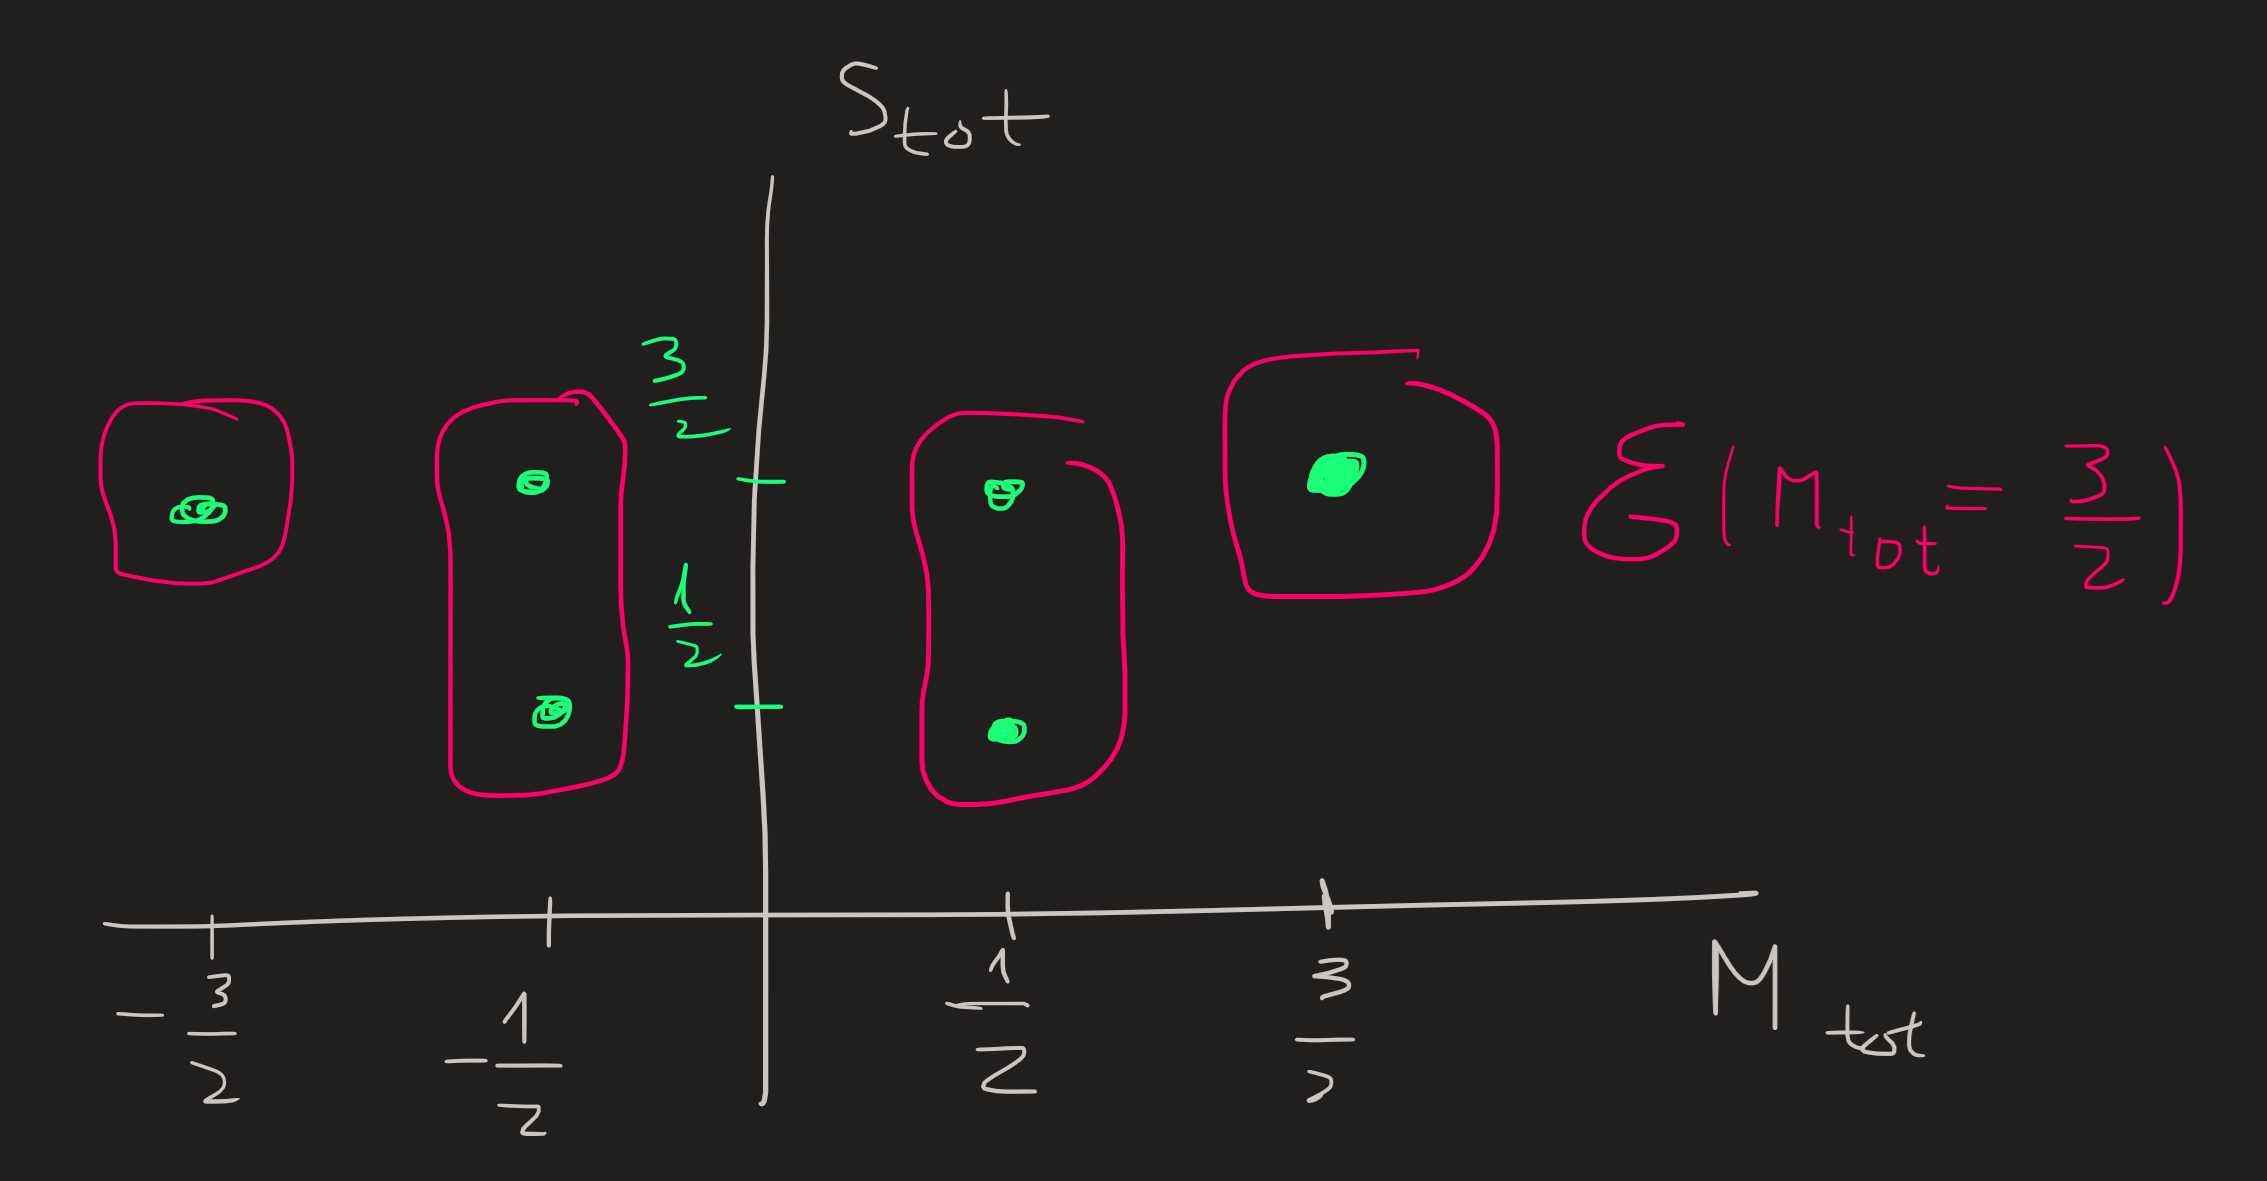 S_tot
3/2
1/2
ℰ(M_tot = 3/2)
-3/2
-1/2
1/2
3/2
M_tot